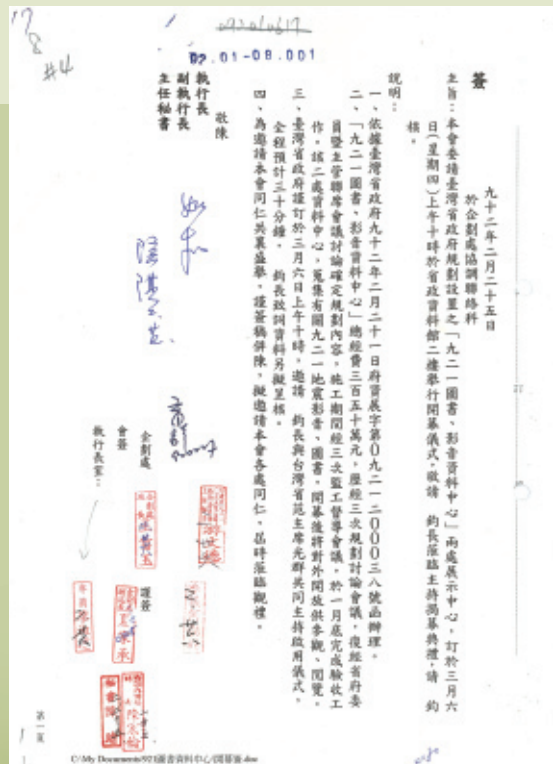 17
8
#4
09201061?
02.01-08.001
簽
九十二年二月二十五日
於企劃處協調聯絡科
主旨：本會委請臺灣省政府規劃設置之「九二一圖書、影音資料中心」兩處展示中心，訂於三月六
日(星期四)上午十時於省政資料館二樓舉行開幕儀式，敬請　鈞長蒞臨主持揭幕典禮，請　鈞
核。
說明：
一、依據臺灣省政府九十二年二月二十一日府資展字第０九二一二０００三八號函辦理。
二、「九二一圖書、影音資料中心」總經費三百五十萬元，歷經三次規劃討論會議，復經省府委
員暨主管聯席會議討論確定規劃內容，施工期間經三次監工督導會議，於一月底完成驗收工
作。該二處資料中心，蒐集有關九二一地震影音、圖書，開幕後將對外開放供參觀、閱覽。
三、臺灣省政府謹訂於三月六日上午十時，邀請　鈞長與台灣省范主席光群共同主持啟用儀式，
全程預計三十分鐘。　鈞長致詞資料另擬呈核。
四、為邀請本會同仁共襄盛舉，謹簽稿併陳，擬邀請本會各處同仁，屆時蒞臨觀禮。
敬陳
執行長
副執行長
主任秘書
企劃處
會簽
執行長室：
謹簽
第一頁
C:\My Documents\921圖書資料中心\開幕簽.doc